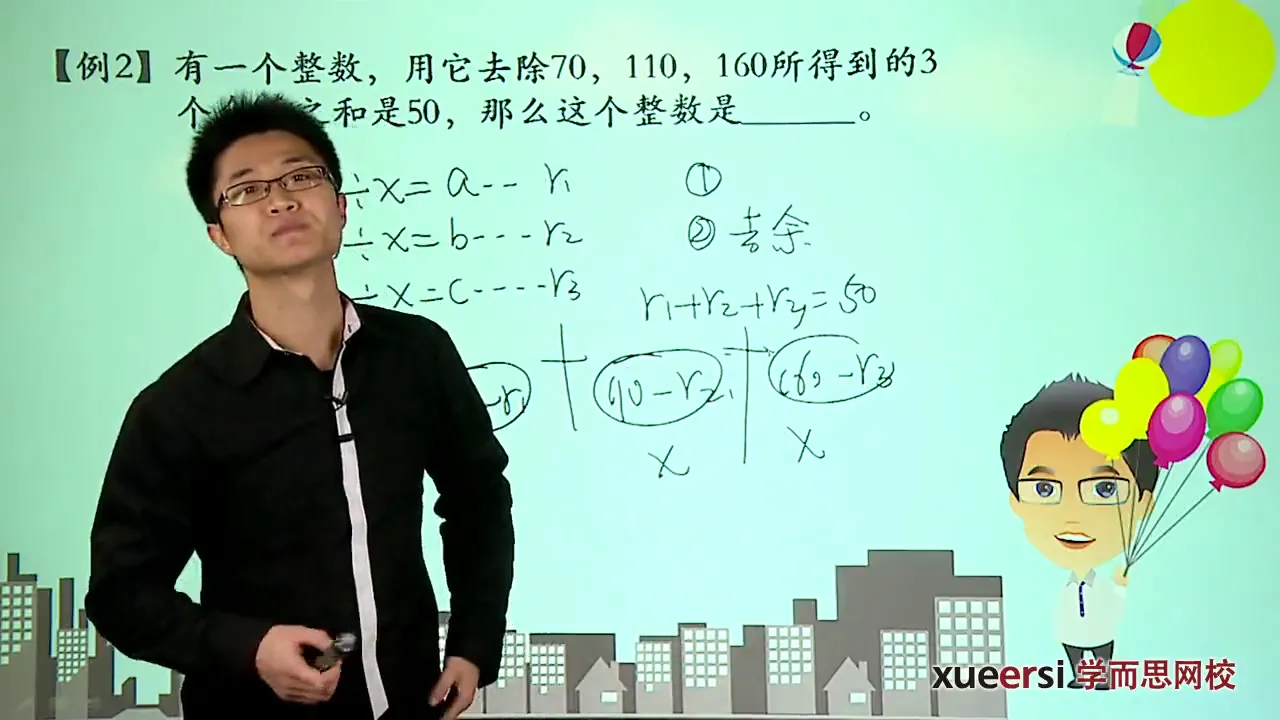 【例2】有一个整数，用它去除70，110，160所得到的3
个 之和是50，那么这个整数是______。
÷x=a-- r₁ ①
÷x=b---r₂ ② 去余
÷x=c----r₃ r₁+r₂+r₃=50
-r₁ 110-r₂ 160-r₃
x x
xueersi 学而思网校